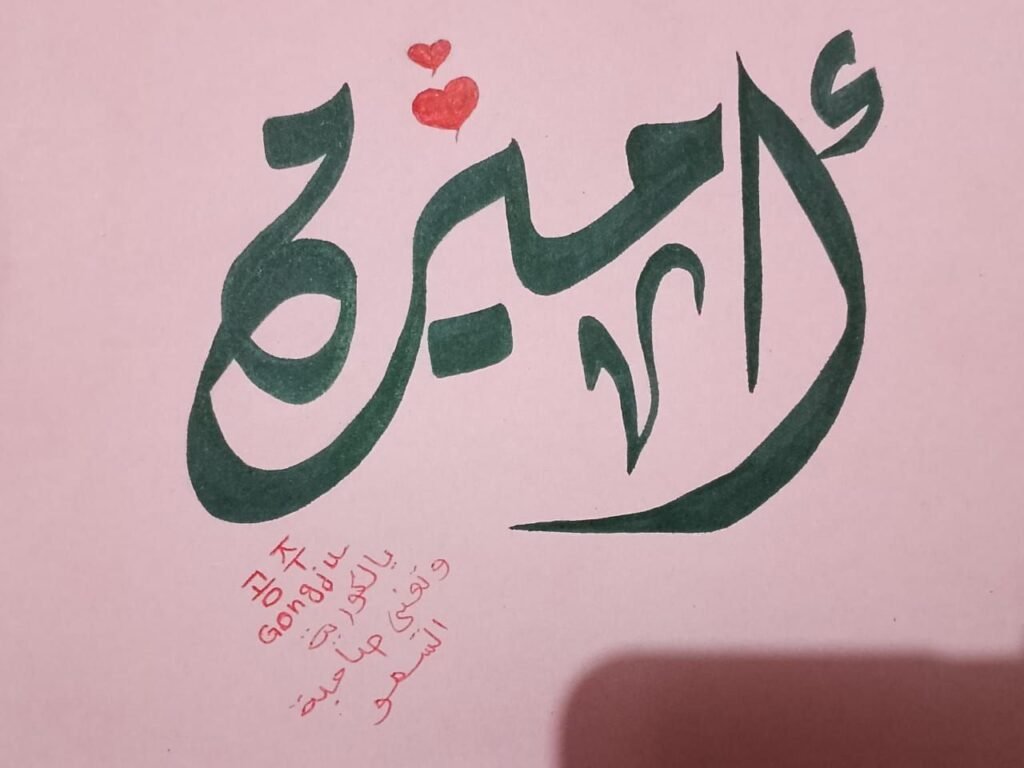 أميرة
공주
Gongdju
بالكورية
وتعني صاحبة
السمو